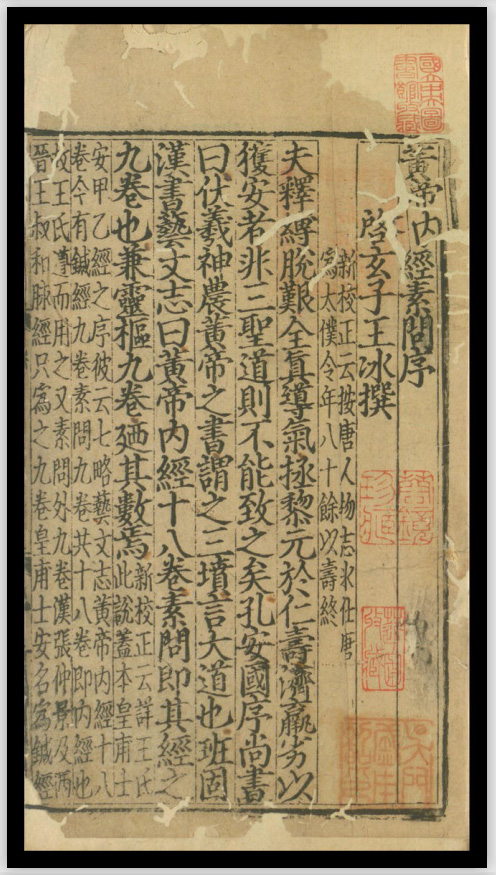 黃帝内經素問序
啓玄子王冰撰
新校正云按唐人物志冰仕唐
爲太僕令年八十餘以壽終
夫釋縛脫艱全眞導氣拯黎元於仁壽濟羸劣以
獲安者非三聖道則不能致之矣孔安國序尚書
曰伏羲神農黃帝之書謂之三墳言大道也班固
漢書藝文志曰黃帝内經十八卷素問即其經之
九卷也兼靈樞九卷廼其數焉
新校正云詳王氏
此說蓋本皇甫士
安甲乙經之序彼云七略藝文志黃帝内經十八
卷今有鍼經九卷素問九卷共十八卷即内經也
故王氏遵而用之又素問外九卷漢張仲景及西
晉王叔和脉經只爲之九卷皇甫士安名爲鍼經